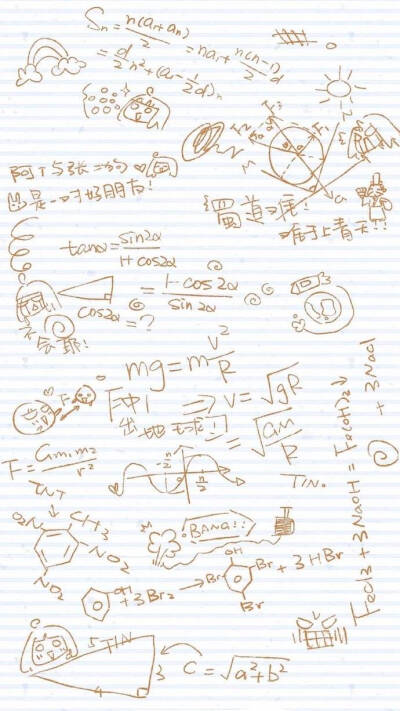 Sₙ = n(a₁+aₙ)/2 = na₁ + n(n-1)/2 d
= d/2 n² + (a₁ - 1/2 d)n
阿T与3张二狗
是一对好朋友!
蜀道难
难于上青天!!
tanα = sin2α/1+cos2α
= 1-cos2α/sin2α
cos2α = ?
不会乖!
mg = m V²/R
F冲!
⇒ V = √gR
出地球!
= √GM/R
F
F = Gm₁m₂/r²
-π/2
π/2
TIN.
TNT
O₂N
CH3
NO₂
NO₂
BANG!!
OH
+ 3Br₂ →
OH
Br
Br
Br
+ 3HBr
FeCl3 + 3NaOH = Fe(OH)₃↓ + 3NaCl
5
TIN
3
4
C = √a²+b²